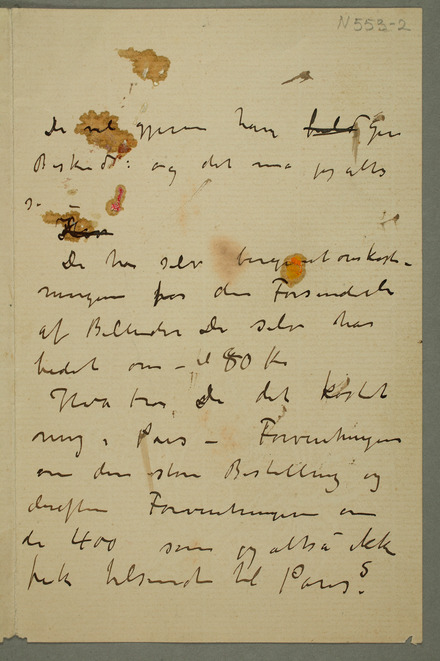 N 553-2
De vil gjerne have
Besked: og det må jeg altså
De har selv beregnet omkost-
ningen for den Forsendelse
af Billeder De selv har
bedet om – til 80 Kr
Hva tror De det kostet
mig i Paris – Forventningen
om den store Bestilling og
derefter Forventningen om
de 400 som jeg altså ikke
fik tilsendt til Paris?